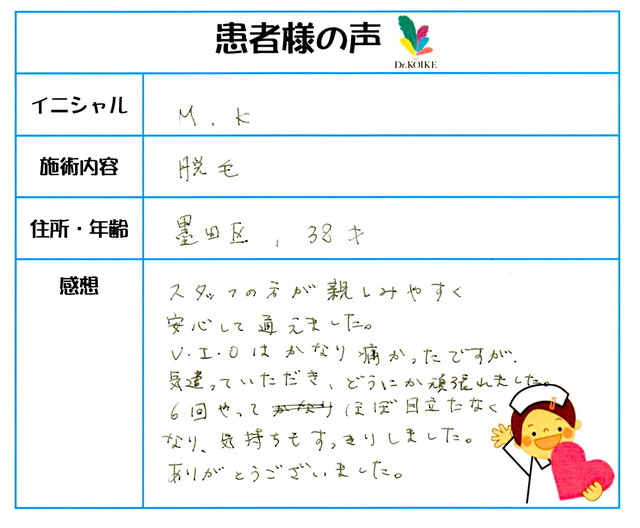 患者様の声
Dr.KOIKE
イニシャル
M.K
施術内容
脱毛
住所・年齢
墨田区, 38才
感想
スタッフの方が親しみやすく
安心して通えました。
V・I・Oはかなり痛かったですが、
気遣っていただき、どうにか頑張れました。
6回やって かなり ほぼ目立たなく
なり、気持ちもすっきりしました。
ありがとうございました。